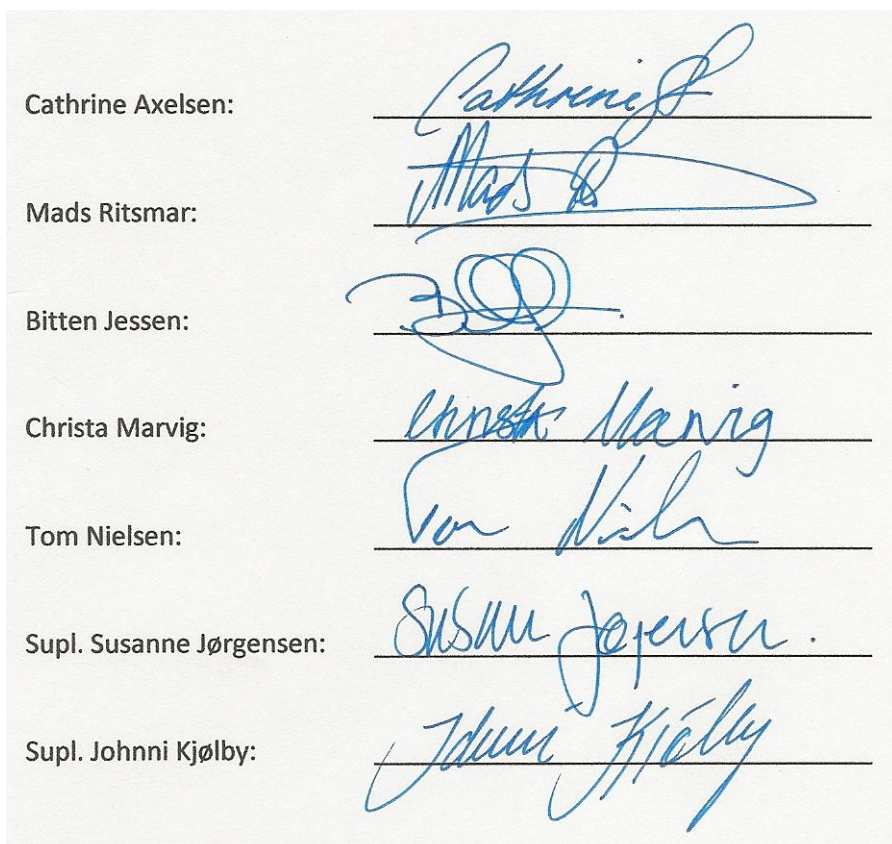 Cathrine Axelsen: Cathrine
Mads Ritsmar: Mads R
Bitten Jessen:
Christa Marvig: Christa Marvig
Tom Nielsen: Tom
Supl. Susanne Jørgensen: Susanne Jørgensen.
Supl. Johnni Kjølby: Johnni Kjølby